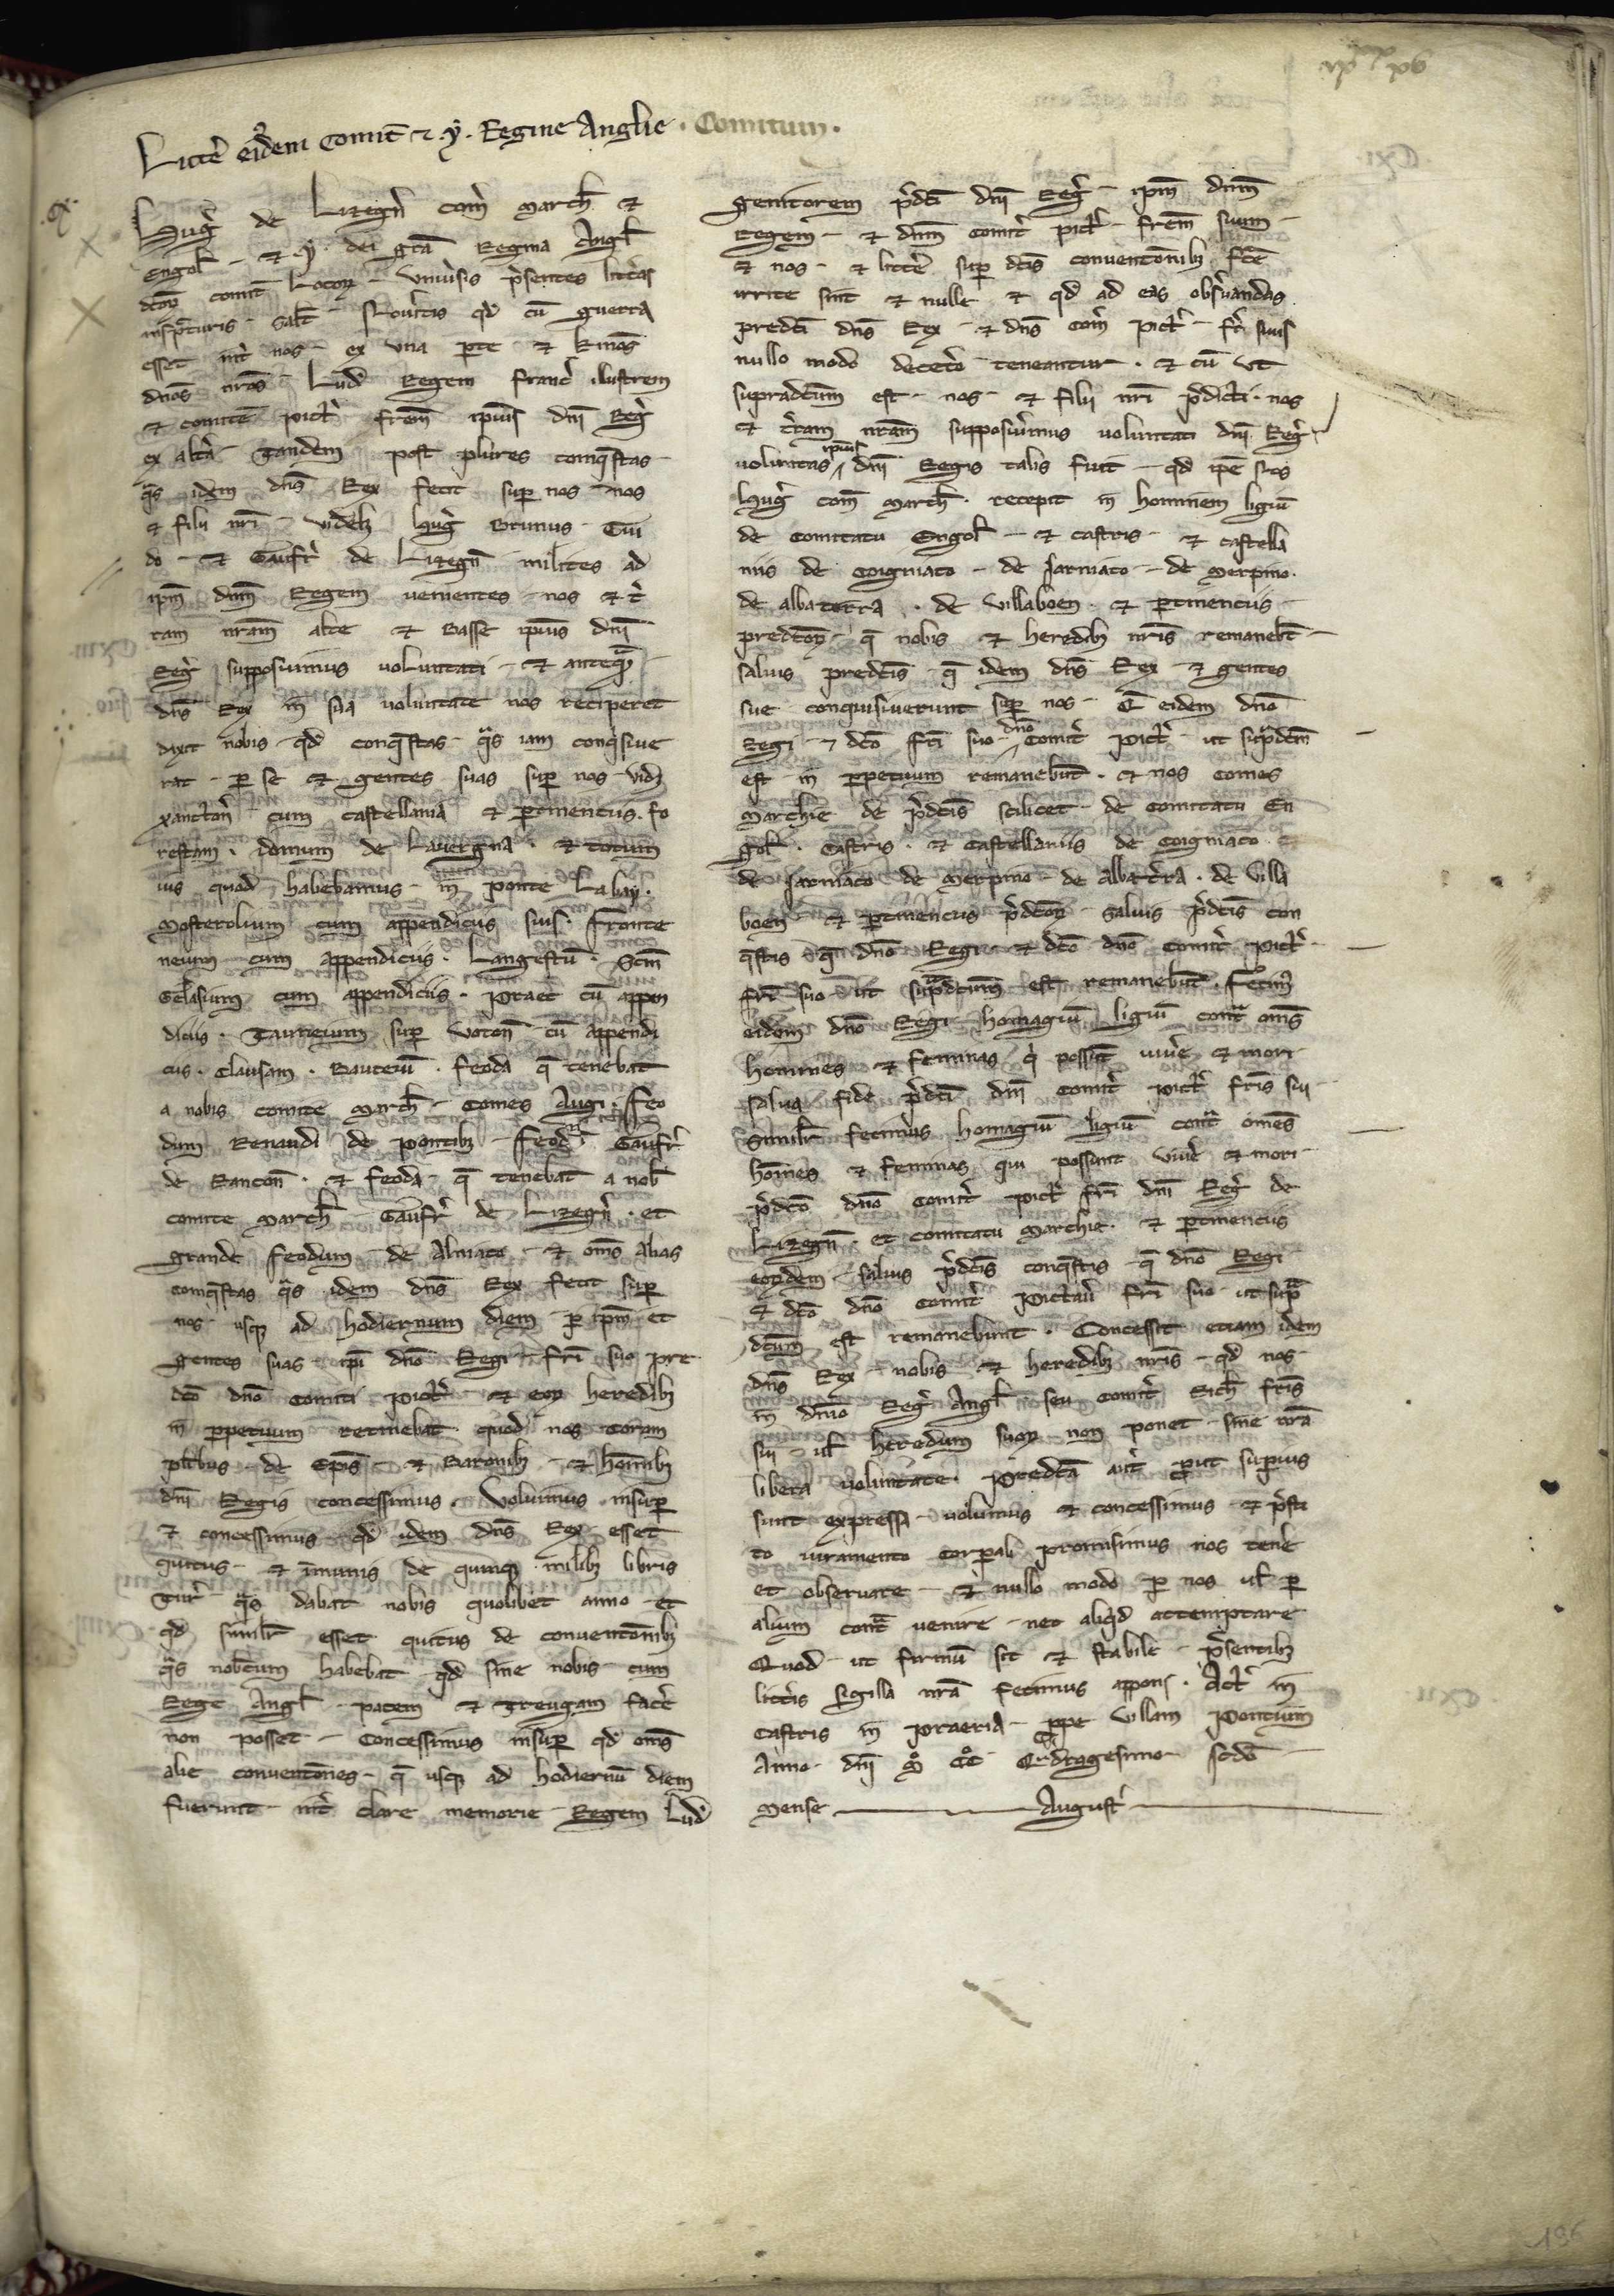 Littẽ eiꝰdem Comit̃ ⁊ .y. Regine Anglie . Comitum .
.cx.
Hug̃ de Lizegñ com̃ march̃ et
Engol̃ et .y. dei gr̃a Regina Angl̃
dc̃oꝝ comit̃ locoꝝ uniũsis p̃sentes litt̃as
insp̃cturis sal̃t Noũitis qđ cũ guerra
esset int̃ nos ex una parte et kmos̃
dños nr̃os Lud̃ Regem franc̃ illustrem
et comitẽ pict̃ frem̃ ipius dñi Reg̃
ex alt̃a Tandem post plures conquestas
q̃s idem dñs Rex fecit sup nos nos
et filii nr̃i videlꝫ hug̃ Brunus Gui
do et Gaufr̃ de Lizegñ milites ad
ipm̃ dñm Regem venientes nos et t̃
ram nr̃am alte et Basse ipius dñi
Reg̃ supposuimus voluntati et anteq̃
dñs Rex in sua voluntate nos reciperet
dixit nobis qđ conq̃stas q̃s iam conq̃sive
rat per se et gentes suas sup nos vidꝫ
xancton̄ cum castellania et ptinentiis. fo
restam . domum de Lauergna . et totum
ius quod habebamus in ponte Labay .
Mosterolium cum appendiciis suis . Fronte
neium cum appendiciis . Langestũ . Scm̃
Gelasium cum appendiciis . Praec cũ appen
diciis . Tauneium sup votoñ cũ appendi
ciis . Clausam . Bauceiũ . feoda q̃ tenebat
a nobis comite march̃ Comes Augi . Feo
dum Renaudi de pontibꝫ Feod̃ Gaufr̃
de Rancoñ . et feoda q̃ tenebat a nob̃
comite march̃ Gaufr̃ de Lizegñ . et
grande feodum de Alniaco et om̃s alias
conq̃stas q̃s idem dñs Rex fecit sup
nos usqꝫ ad hodiernum diem p ipm̃ et
gentes suas ipi dño Regi fr̃i suo pre
dc̃o dño comiti pict̃ et eoꝝ heredibꝫ
in ppetuum retinebat quod nos coram
pl̃ibus de Ep̃is et Baronibꝫ et hom̃ibꝫ
dñi Regis concessimus . Voluimus insup
et concessimus qđ idem dñs Rex esset
quitus et ĩmunis de quinqꝫ milibꝫ libris
Tur̃ q̃s dabat nobis quolibet anno et
qđ simil̃r esset quitus de conventõnibꝫ
q̃s nobc̃um habebat qđ sine nobis cum
Rege Angl̃ pacem et Treugam fac̃e
non posset Concessimus insup qđ om̃s
alie conventões q̃ usqꝫ ad hodiernũ diem
fuerunt int̃ clare memorie Regem Lud̃
genitorem p̃dc̃i dñi Reg̃ ipm̃ dñm
Regem et dñm comit̃ pict̃ frem̃ suum
et nos et litt̃e sup dc̃is conventõnibꝫ fc̃e
irrite sint et nulle et qđ ad eas obs̃uandas
predc̃i dñs Rex et dñs com̃ pict̃ fr̃ suus
nullo modo decet̃o teneantur . et cũ ut
supradc̃um est nos et filii nr̃i p̃dicti nos
et t̃ram nr̃am supposũimus voluntati dñi Reg̃
voluntas ipius dñi Regis talis fuit qđ ipe
Hug̃ com̃ march̃ . recepit in hominem ligiũ
de comitatu Engol̃ et castris et castella
niis de Coigniaco de Jarniaco de Merpino .
de albaterra . de Villaboen . et ptinentiis
predc̃oꝝ q̃ nobis et heredibꝫ nr̃is remanebt̃
salvis predc̃is q̃ idem dñs Rex et gentes
sue conquisiverunt sup nos q̃ eidem dño
Regi ⁊ dc̃o fr̃i suo dño comit̃ pict̃ ut sup̃dc̃m
est in ppetuum remanebũt . et nos comes
marchie de p̃dc̃is scilicet de comitatu En
gol̃ . castris . et castellaniis de coigniaco
de Jarniaco de Merpino de albat̃ra . de Villa
boen et ptinentiis p̃dc̃oꝝ salvis p̃dc̃is con
q̃stis q̃ dño Regi et dc̃o dño comit̃ pict̃
fr̃i suo ut sup̃dc̃um est remanebũt . Fecimꝰ
eidem dño Regi homagiũ ligiũ cont̃ om̃s
homines et feminas q̃i possũt viũe et mori
salva fide p̃dc̃i dñi comit̃ pict̃ fr̃is sui
Simil̃r fecimus homagiũ ligiũ cont̃ omẽs
hom̃es et feminas qui possunt viũe et mori
p̃dc̃o dño comit̃ pict̃ fr̃i dñi Reg̃ de
Lizegñ . et comitatu Marchie . et ptinentiis
eoꝝdem salvis p̃dc̃is conq̃stis q̃ dño Regi
et dc̃o dño comit̃ Pictav̄ fr̃i suo ut sup̃
dc̃um est remanebunt . Concessit etiam idem
dñs Rex nobis et heredibꝫ nr̃is qđ nos
in dm̃io Reg̃ Angl̃ seu comit̃ Rich̃ fr̃is
sui ul̃ heredum suoꝝ non ponet sine nr̃a
libera voluntate . Predc̃a aut̃ put supius
sunt expressa volumus et concessimus et p̃sti
to iuramento corpali promisimus nos teñe
et observare et nullo modo p nos ul̃ p
alium cont̃ venire nec aliq̃d attemptare
Quod ut firmũ sit et stabile p̃sentibꝫ
litt̃is sigilla nr̃a fecimus apponi . Act̃ in
castris in praeria ppe villam Pontium
Anno dñi Mº CCº Qᵃdragesimo scdõ
Mense August̃
196